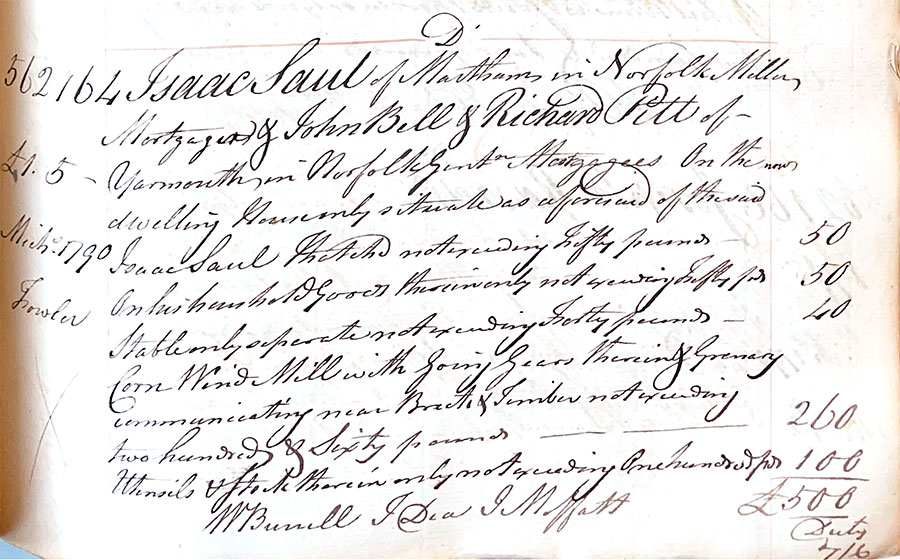 D:
562164 Isaac Saul of Martham in Norfolk Miller
Mortgager & John Bell & Richard Pitt of
£1. 5 – Yarmouth in Norfolk Gentn Mortgagees On the now
dwelling House only situate as aforesaid of the said
Michs 1790 Isaac Saul Thatchd not exceeding Fifty pounds – 50
Fowler On his household Goods therein only not exceeding Fifty pds 50
Stable only seperate not exceeding Forty pounds – 40
Corn Wind Mill with Going Gears therein & Grenary
communicating near Brick & Timber not exceeding
two hundred & Sixty pounds — — 260
Utensils & Stock therein only not exceeding One hundred pds 100
W Burrell J Dea J Moffatt £500
Duty
7/6